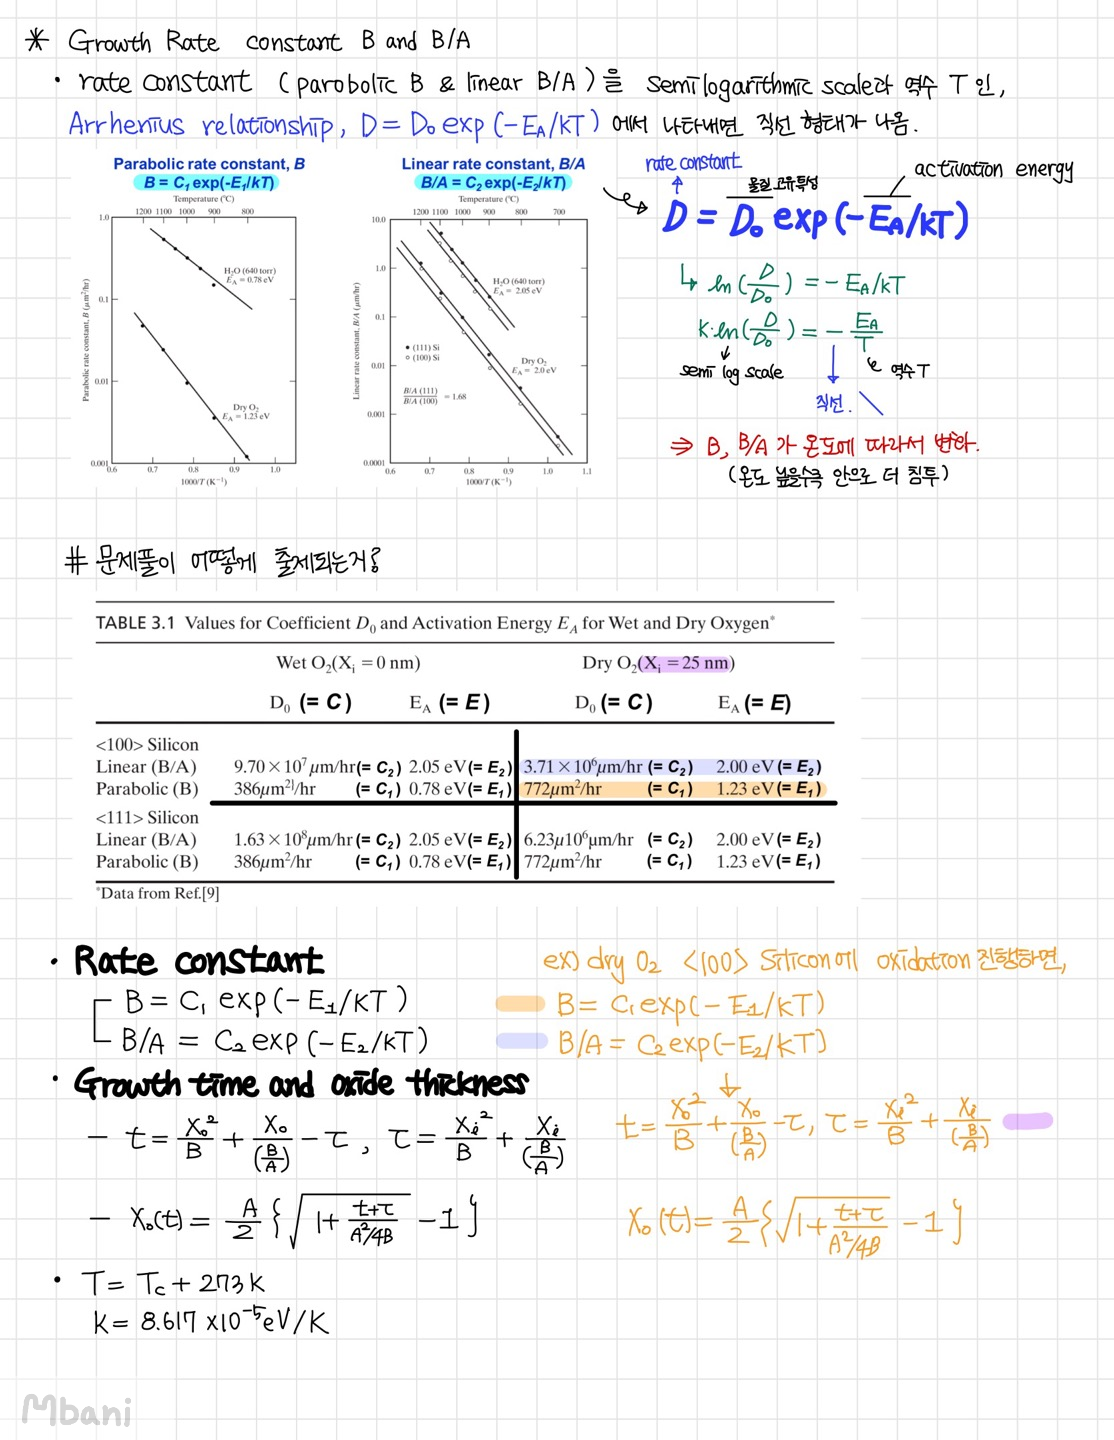 * Growth Rate constant B and B/A
· rate constant (parabolic B & linear B/A)을 semilogarithmic scale과 역수 T인,
Arrhenius relationship, D = D₀ exp(-E_A/kT)에서 나타내면 직선 형태가 나옴.
Parabolic rate constant, B
B = C₁ exp(-E₁/kT)
Temperature (°C)
1200 1100 1000 900 800
1.0
0.1
0.01
0.001
Parabolic rate constant, B (μm²/hr)
H₂O (640 torr)
E_A = 0.78 eV
Dry O₂
E_A = 1.23 eV
0.6 0.7 0.8 0.9 1.0
1000/T (K⁻¹)
Linear rate constant, B/A
B/A = C₂ exp(-E₂/kT)
Temperature (°C)
1200 1100 1000 900 800 700
10.0
1.0
0.1
0.01
0.001
0.0001
Linear rate constant, B/A (μm/hr)
H₂O (640 torr)
E_A = 2.05 eV
• (111) Si
○ (100) Si
Dry O₂
E_A = 2.0 eV
B/A (111)
B/A (100) = 1.68
0.6 0.7 0.8 0.9 1.0 1.1
1000/T (K⁻¹)
rate constant
물질 고유특성
activation energy
D = D₀ exp(-E_A/kT)
↳ ln(D/D₀) = -E_A/kT
k·ln(D/D₀) = - E_A/T
semi log scale
역수 T
직선.
⇒ B, B/A가 온도에 따라서 변화.
(온도 높을수록 안으로 더 침투)
# 문제풀이 어떻게 출제되는거?
TABLE 3.1 Values for Coefficient D₀ and Activation Energy E_A for Wet and Dry Oxygen*
Wet O₂(Xᵢ = 0 nm) Dry O₂(Xᵢ = 25 nm)
D₀ (= C) E_A (= E) D₀ (= C) E_A (= E)
<100> Silicon
Linear (B/A) 9.70 × 10⁷ μm/hr (= C₂) 2.05 eV (= E₂) 3.71 × 10⁶ μm/hr (= C₂) 2.00 eV (= E₂)
Parabolic (B) 386μm²/hr (= C₁) 0.78 eV (= E₁) 772μm²/hr (= C₁) 1.23 eV (= E₁)
<111> Silicon
Linear (B/A) 1.63 × 10⁸μm/hr (= C₂) 2.05 eV (= E₂) 6.23μ10⁶μm/hr (= C₂) 2.00 eV (= E₂)
Parabolic (B) 386μm²/hr (= C₁) 0.78 eV (= E₁) 772μm²/hr (= C₁) 1.23 eV (= E₁)
*Data from Ref.[9]
· Rate constant
B = C₁ exp(-E₁/kT)
B/A = C₂ exp(-E₂/kT)
· Growth time and oxide thickness
- t = X₀²/B + X₀/(B/A) - τ, τ = Xᵢ²/B + Xᵢ/(B/A)
- X₀(t) = A/2 {√(1 + (t+τ)/(A²/4B)) - 1}
· T = Tc + 273 K
k = 8.617 × 10⁻⁵ eV/K
ex) dry O₂ <100> Silicon에 oxidation 진행하면,
B = C₁ exp(-E₁/kT)
B/A = C₂ exp(-E₂/kT)
↓
t = X₀²/B + X₀/(B/A) - τ, τ = Xᵢ²/B + Xᵢ/(B/A)
X₀(t) = A/2 {√(1 + (t+τ)/(A²/4B)) - 1}
Mbani